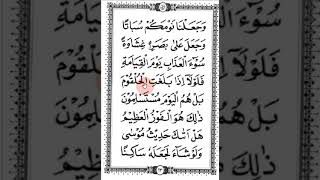 وَجَعَلْنَا نَوْمَكُمْ سُبَاتًا
وَجَعَلَ عَلٰى بَصَرِهٖ غِشَاوَةً
سُوْٓءَ الْعَذَابِ يَوْمَ الْقِيَامَةِ
فَلَوْلَآ اِذَا بَلَغَتِ الْحُلْقُوْمَ
بَلْ هُمُ الْيَوْمَ مُسْتَسْلِمُوْنَ
ذٰلِكَ هُوَ الْفَوْزُ الْعَظِيْمُ
هَلْ اَتٰىكَ حَدِيْثُ مُوْسٰى
وَلَوْ شَآءَ لَجَعَلَهٗ سَاكِنًا